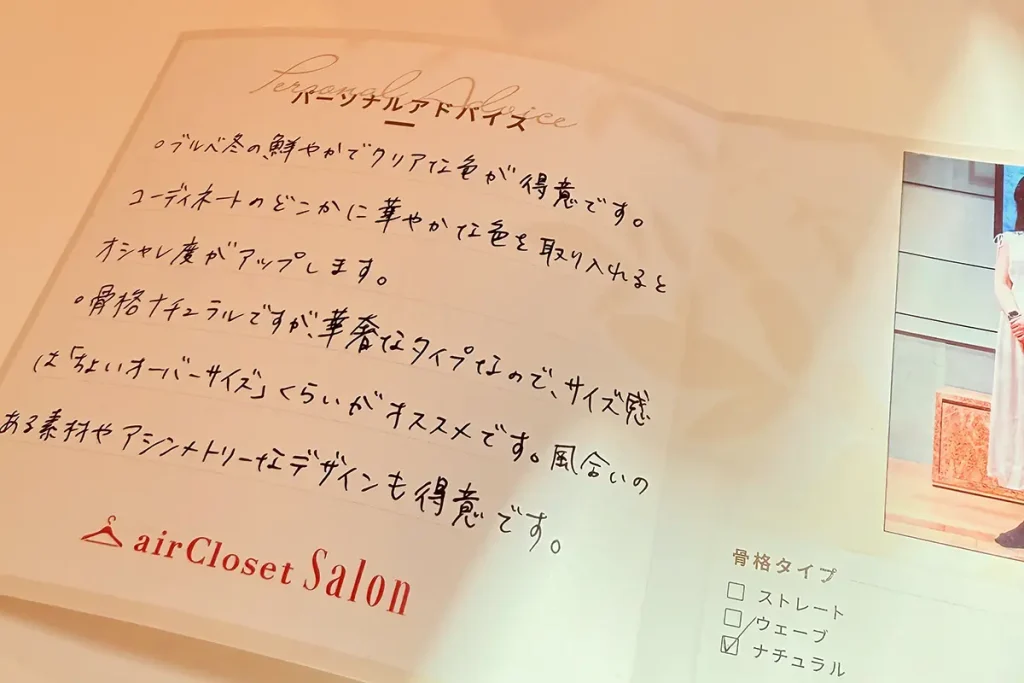 Personal Advice
パーソナルアドバイス
○ブルベ冬の鮮やかでクリアな色が得意です。
コーディネートのどこかに華やかな色を取り入れると
オシャレ度がアップします。
○骨格ナチュラルですが、華奢なタイプなので、サイズ感
は「ちょいオーバーサイズ」くらいがオススメです。風合いの
ある素材やアシンメトリーなデザインも得意です。
airCloset Salon
骨格タイプ
□ ストレート
□ ウェーブ
☑ ナチュラル